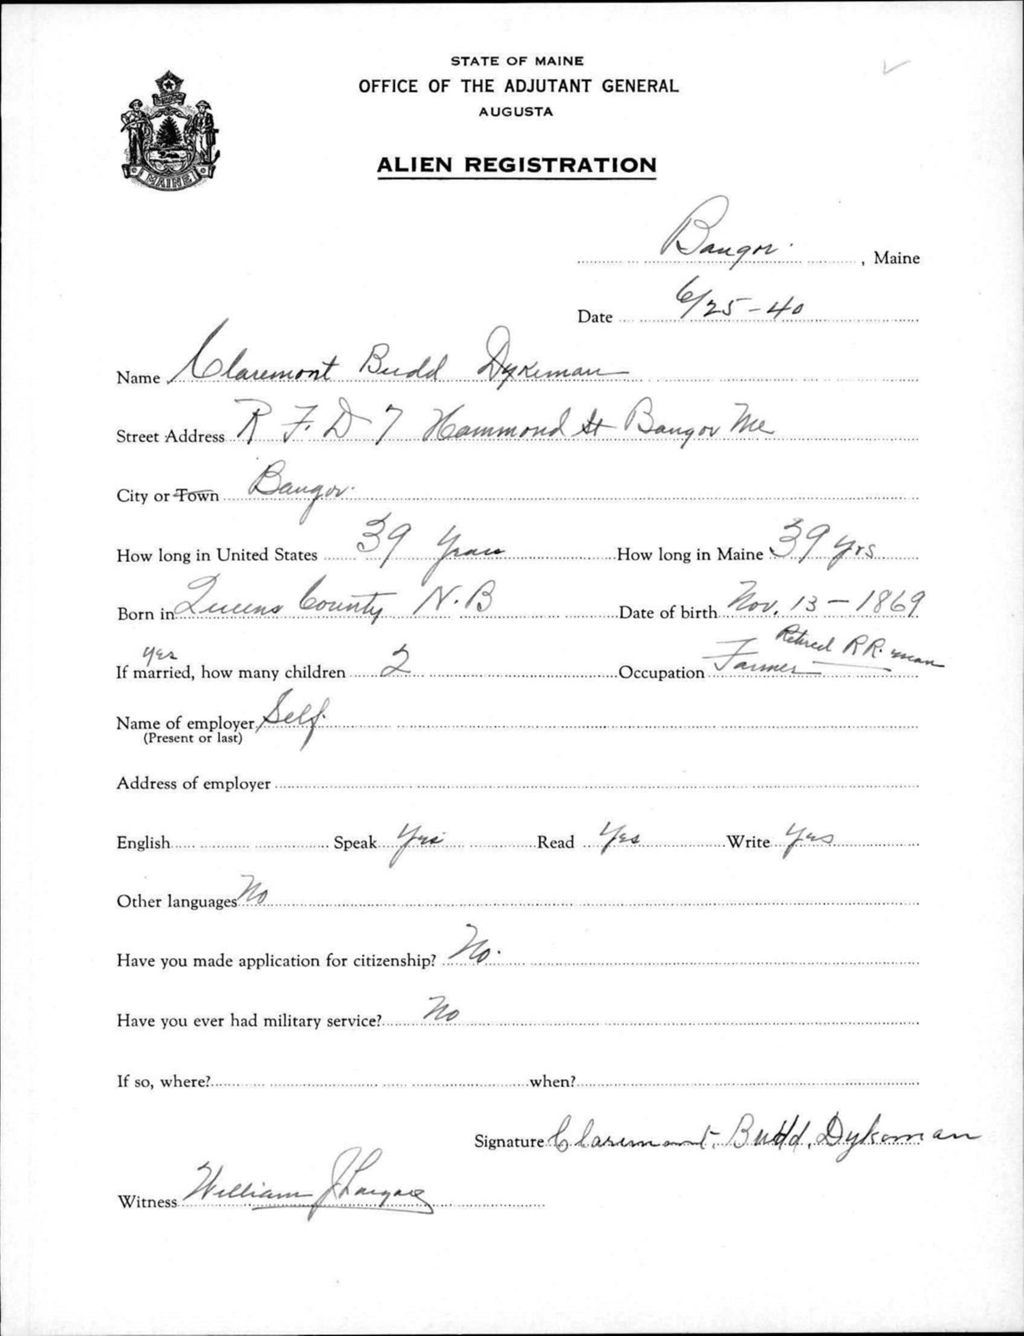 STATE OF MAINE
OFFICE OF THE ADJUTANT GENERAL
AUGUSTA
ALIEN REGISTRATION
MAINE
Bangor. , Maine
Date 6/25-40
Name Claremont Budd Dykeman
Street Address R F. D 7 Hammond St Bangor Me
City or Town Bangor.
How long in United States 39 Years How long in Maine 39 yrs
Born in Queens County N.B Date of birth Nov. 13-1869
yes Retired R R. man
If married, how many children 2 Occupation Farmer
Name of employer Self.
(Present or last)
Address of employer
English Speak Yes Read Yes Write Yes
Other languages No
Have you made application for citizenship? No.
Have you ever had military service? No
If so, where? when?
Signature Claremont. Budd. Dykeman
Witness William J